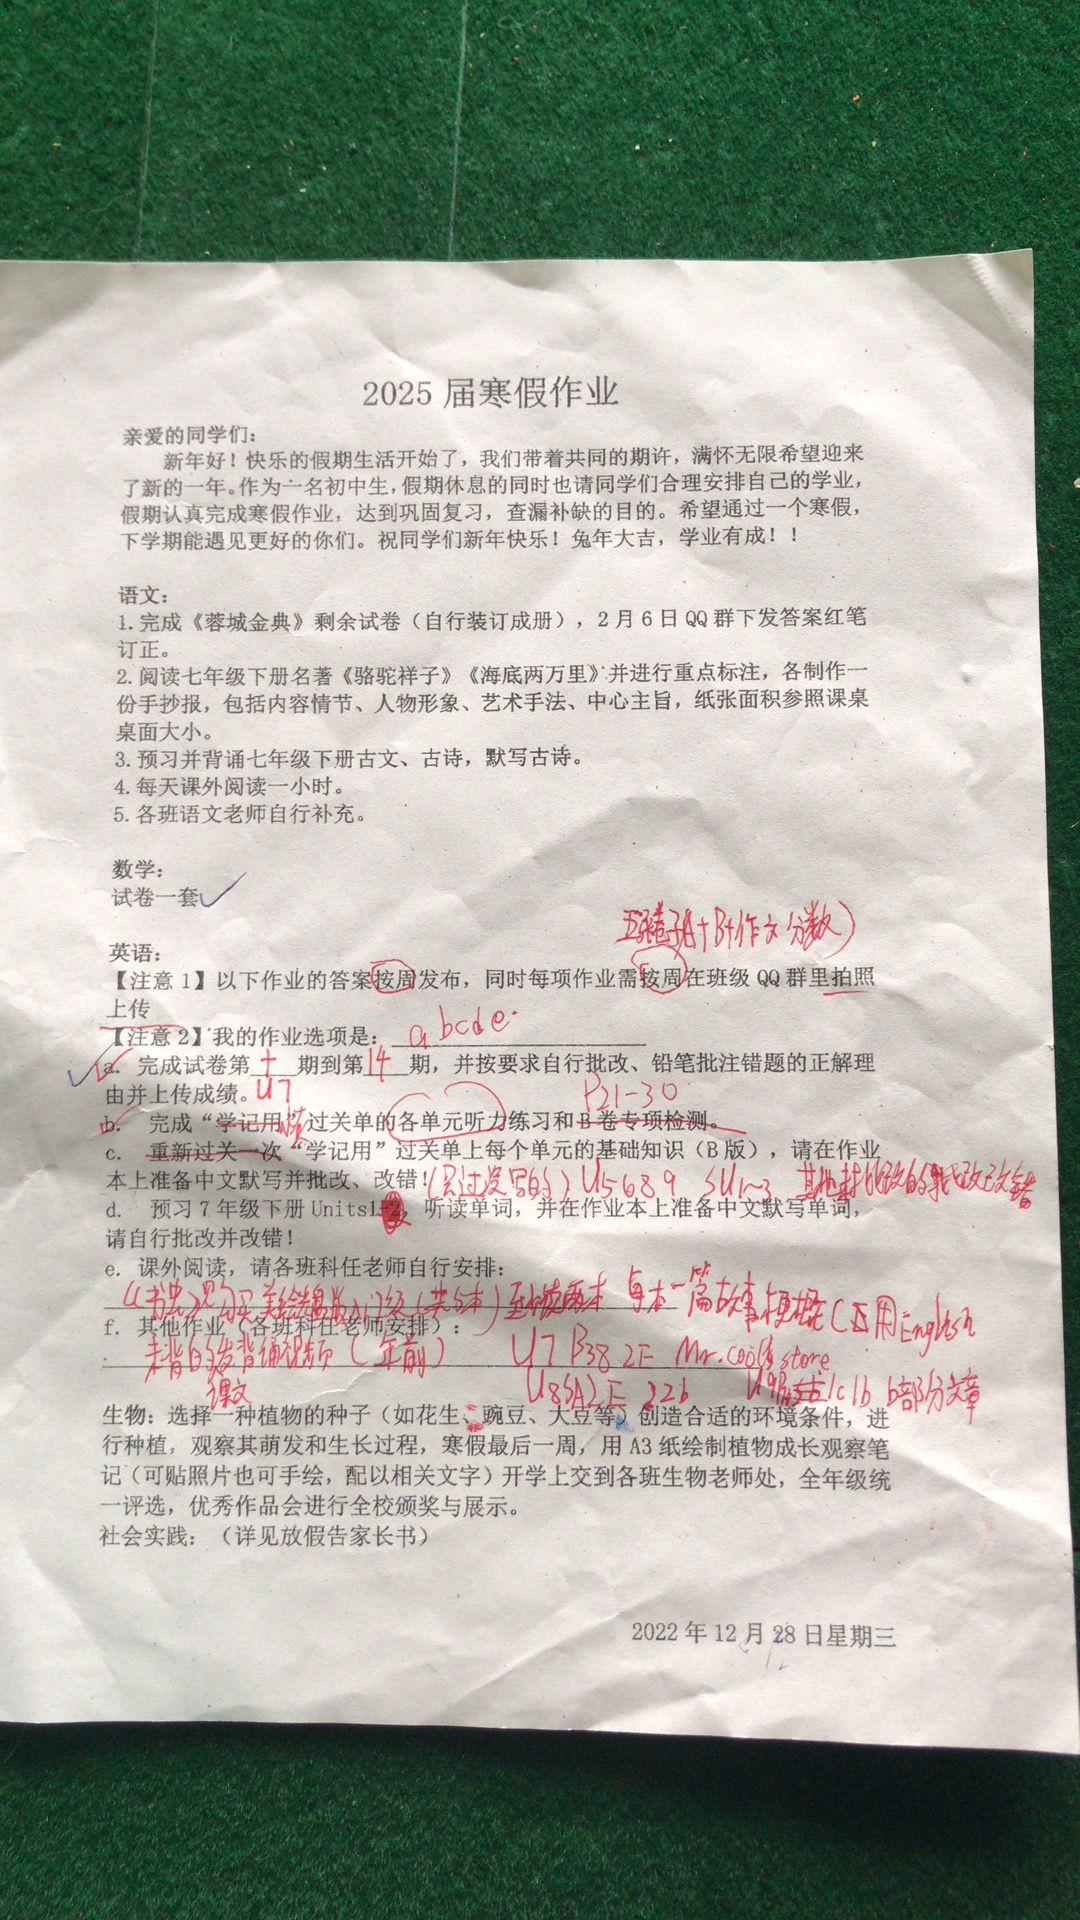 2025 届寒假作业
亲爱的同学们：
新年好！快乐的假期生活开始了，我们带着共同的期许，满怀无限希望迎来
了新的一年。作为一名初中生，假期休息的同时也请同学们合理安排自己的学业，
假期认真完成寒假作业，达到巩固复习，查漏补缺的目的。希望通过一个寒假，
下学期能遇见更好的你们。祝同学们新年快乐！兔年大吉，学业有成！！
语文：
1.完成《蓉城金典》剩余试卷（自行装订成册），2月6日QQ群下发答案红笔
订正。
2.阅读七年级下册名著《骆驼祥子》《海底两万里》并进行重点标注，各制作一
份手抄报，包括内容情节、人物形象、艺术手法、中心主旨，纸张面积参照课桌
桌面大小。
3.预习并背诵七年级下册古文、古诗，默写古诗。
4.每天课外阅读一小时。
5.各班语文老师自行补充。
数学：
试卷一套
A+B+作文分数）
英语：
【注意1】以下作业的答案按周发布，同时每项作业需按周在班级QQ群里拍照
上传
【注意2】我的作业选项是：abcde.
a. 完成试卷第十期到第14期，并按要求自行批改、铅笔批注错题的正解理
由并上传成绩。U7 P21-30
b. 完成“学记用”过关单的各单元听力练习和B卷专项检测。
c. 重新过关一次“学记用”过关单上每个单元的基础知识（B版），请在作业
本上准备中文默写并批改、改错！（只过没写的）U5689 SU1-3
d. 预习7年级下册Units1-2，听读单词，并在作业本上准备中文默写单词，
请自行批改并改错！
e. 课外阅读，请各班科任老师自行安排：
（共5本） 每本一篇故事梗概（用English
f. 其他作业（各班科任老师安排）：
未背的发背诵视频（年前） U7 P38 2E Mr.cool's store
课文 U8 SA 2E 22b 1c1b b部分文章
生物：选择一种植物的种子（如花生、豌豆、大豆等）创造合适的环境条件，进
行种植，观察其萌发和生长过程，寒假最后一周，用A3纸绘制植物成长观察笔
记（可贴照片也可手绘，配以相关文字）开学上交到各班生物老师处，全年级统
一评选，优秀作品会进行全校颁奖与展示。
社会实践：（详见放假告家长书）
2022年12月28日星期三